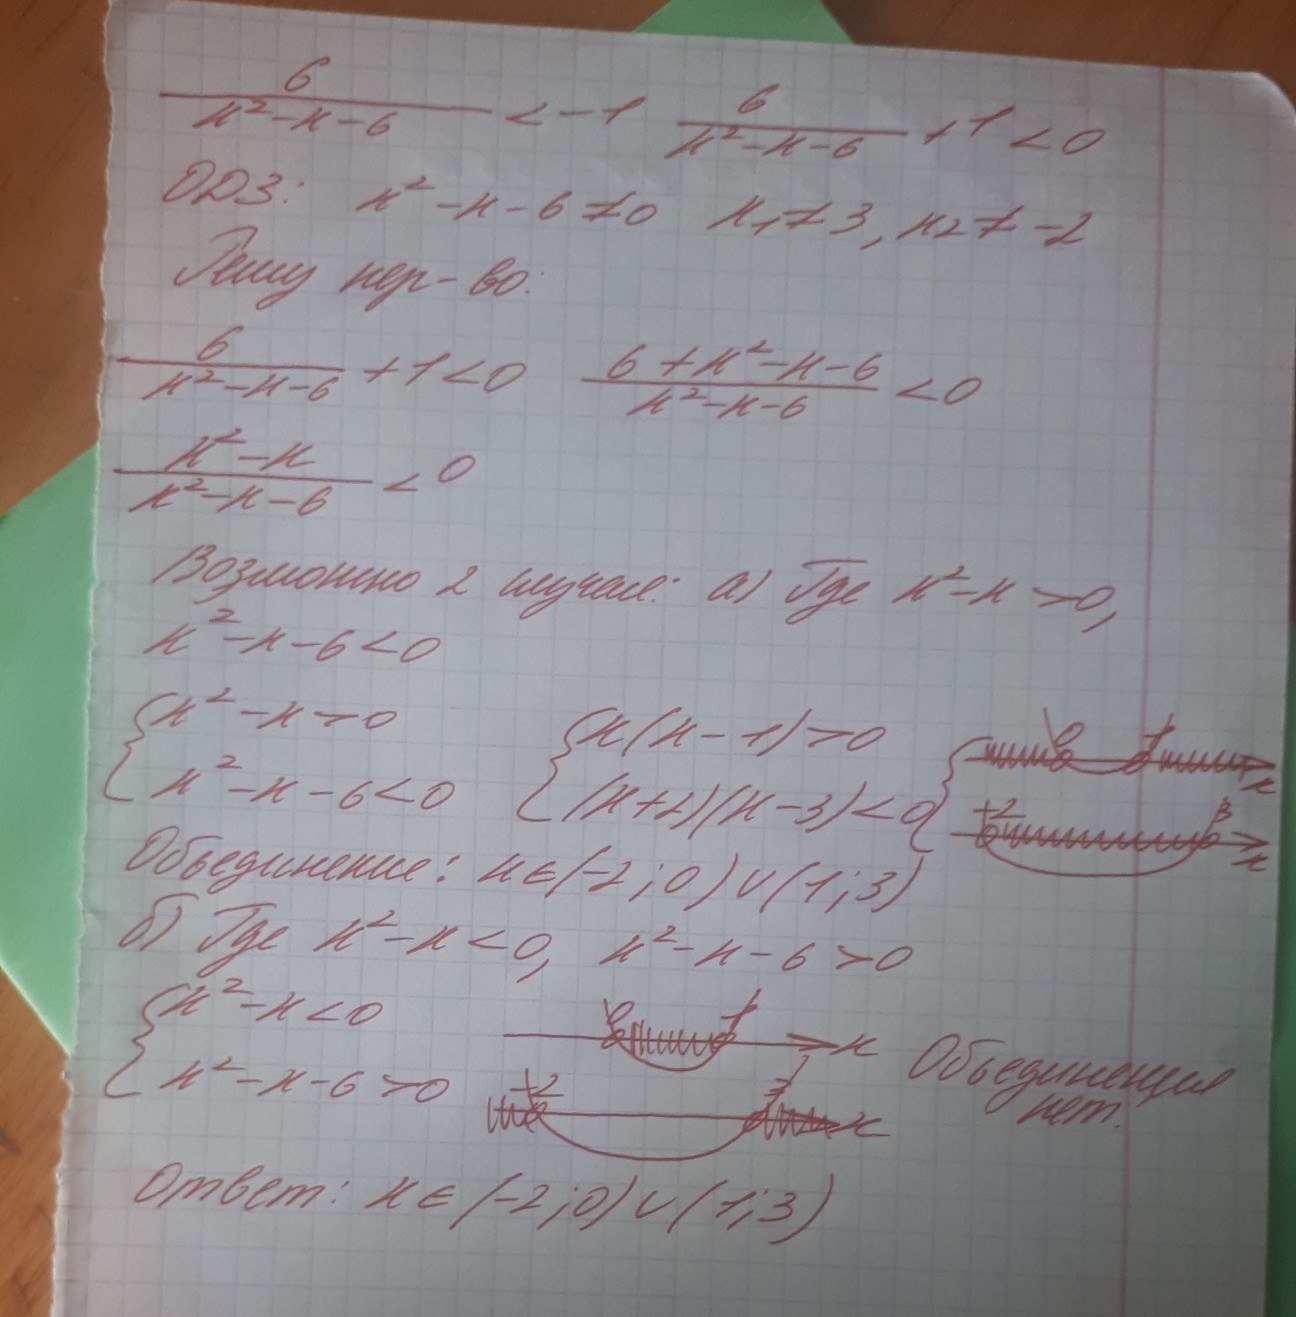 6/(x²-x-6) < -1   6/(x²-x-6) + 1 < 0
ОДЗ: x²-x-6≠0   x₁≠3, x₂≠-2
Решу нер-во:
6/(x²-x-6) + 1 < 0   (6+x²-x-6)/(x²-x-6) < 0
(x²-x)/(x²-x-6) < 0
Возможно 2 случая: а) Где x²-x>0,
x²-x-6<0
{x²-x>0   {x(x-1)>0   { 0 1 x
{x²-x-6<0   {(x+2)(x-3)<0   { -2 3 x
Объединение: x∈(-2;0)∪(1;3)
б) Где x²-x<0, x²-x-6>0
{x²-x<0   0 1 x   Объединения
{x²-x-6>0   -2 3 x   нет.
Ответ: x∈(-2;0)∪(1;3)